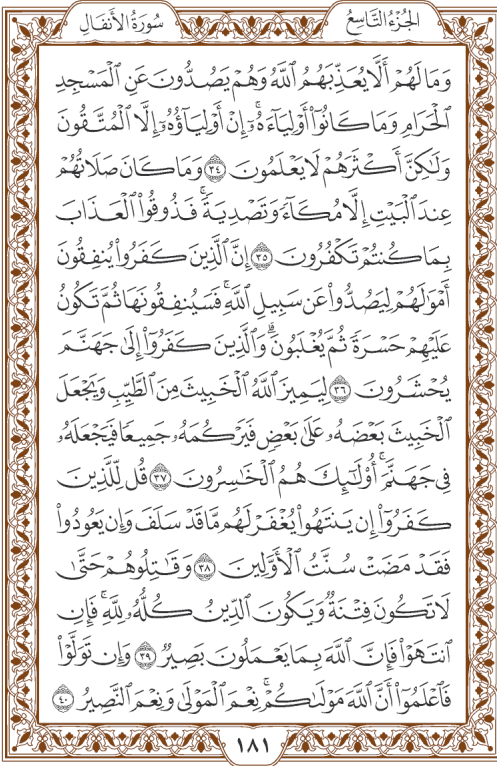 الجُزْءُ التَّاسِعُ
سُورَةُ الأَنفَالِ
وَمَا لَهُمْ أَلَّا يُعَذِّبَهُمُ ٱللَّهُ وَهُمْ يَصُدُّونَ عَنِ ٱلْمَسْجِدِ
ٱلْحَرَامِ وَمَا كَانُوٓا۟ أَوْلِيَآءَهُۥٓ ۚ إِنْ أَوْلِيَآؤُهُۥٓ إِلَّا ٱلْمُتَّقُونَ
وَلَـٰكِنَّ أَكْثَرَهُمْ لَا يَعْلَمُونَ ٣٤ وَمَا كَانَ صَلَاتُهُمْ
عِندَ ٱلْبَيْتِ إِلَّا مُكَآءً وَتَصْدِيَةً ۚ فَذُوقُوا۟ ٱلْعَذَابَ
بِمَا كُنتُمْ تَكْفُرُونَ ٣٥ إِنَّ ٱلَّذِينَ كَفَرُوا۟ يُنفِقُونَ
أَمْوَٰلَهُمْ لِيَصُدُّوا۟ عَن سَبِيلِ ٱللَّهِ ۚ فَسَيُنفِقُونَهَا ثُمَّ تَكُونُ
عَلَيْهِمْ حَسْرَةً ثُمَّ يُغْلَبُونَ ۗ وَٱلَّذِينَ كَفَرُوٓا۟ إِلَىٰ جَهَنَّمَ
يُحْشَرُونَ ٣٦ لِيَمِيزَ ٱللَّهُ ٱلْخَبِيثَ مِنَ ٱلطَّيِّبِ وَيَجْعَلَ
ٱلْخَبِيثَ بَعْضَهُۥ عَلَىٰ بَعْضٍ فَيَرْكُمَهُۥ جَمِيعًا فَيَجْعَلَهُۥ
فِى جَهَنَّمَ ۚ أُو۟لَـٰٓئِكَ هُمُ ٱلْخَـٰسِرُونَ ٣٧ قُل لِّلَّذِينَ
كَفَرُوٓا۟ إِن يَنتَهُوا۟ يُغْفَرْ لَهُم مَّا قَدْ سَلَفَ وَإِن يَعُودُوا۟
فَقَدْ مَضَتْ سُنَّتُ ٱلْأَوَّلِينَ ٣٨ وَقَـٰتِلُوهُمْ حَتَّىٰ
لَا تَكُونَ فِتْنَةٌ وَيَكُونَ ٱلدِّينُ كُلُّهُۥ لِلَّهِ ۚ فَإِنِ
ٱنتَهَوْا۟ فَإِنَّ ٱللَّهَ بِمَا يَعْمَلُونَ بَصِيرٌ ٣٩ وَإِن تَوَلَّوْا۟
فَٱعْلَمُوٓا۟ أَنَّ ٱللَّهَ مَوْلَىٰكُمْ ۚ نِعْمَ ٱلْمَوْلَىٰ وَنِعْمَ ٱلنَّصِيرُ ٤٠
١٨١